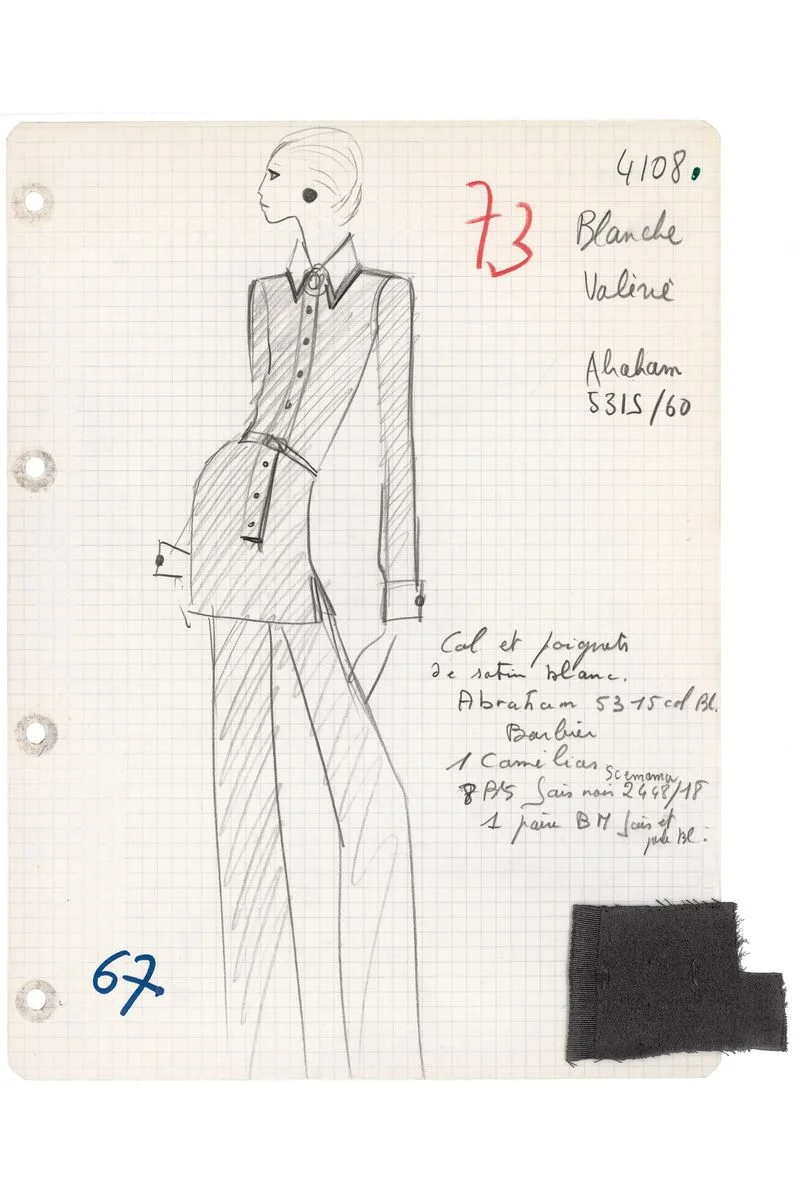 4108.
73
Blanche
Valérie
Abraham
5315/60
Col et poignets
de satin blanc.
Abraham 5315 col Bl.
Barbier
1 Camélias
Scemama
8 Bts Jais noir 2448/18
1 paire BM Jais et
Bl.
67